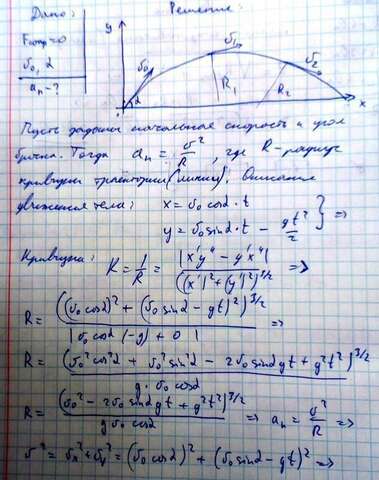 Дано: Решение:
Fсопр=0
υ₀, α
aₙ-?
y υ₀ υ₁ υ₂ α R₁ R₂ x
Пусть заданы начальная скорость и угол
броска. Тогда aₙ = υ²/R, где R-радиус
кривизны траектории (линии). Описание
движения тела: x = υ₀ cosα · t
y = υ₀ sinα · t - gt²/2 } =>
Кривизна: K = 1/R = |x'y" - y'x"| / ((x')² + (y')²)^3/2 =>
R = ((υ₀ cosα)² + (υ₀ sinα - gt)²)^3/2 / |υ₀ cosα (-g) + 0| =>
R = (υ₀² cos²α + υ₀² sin²α - 2υ₀ sinα gt + g²t²)^3/2 / g · υ₀ cosα
R = (υ₀² - 2υ₀ sinα gt + g²t²)^3/2 / g υ₀ cosα => aₙ = υ²/R =>
υ² = υₓ² + υᵧ² = (υ₀ cosα)² + (υ₀ sinα - gt)² =>